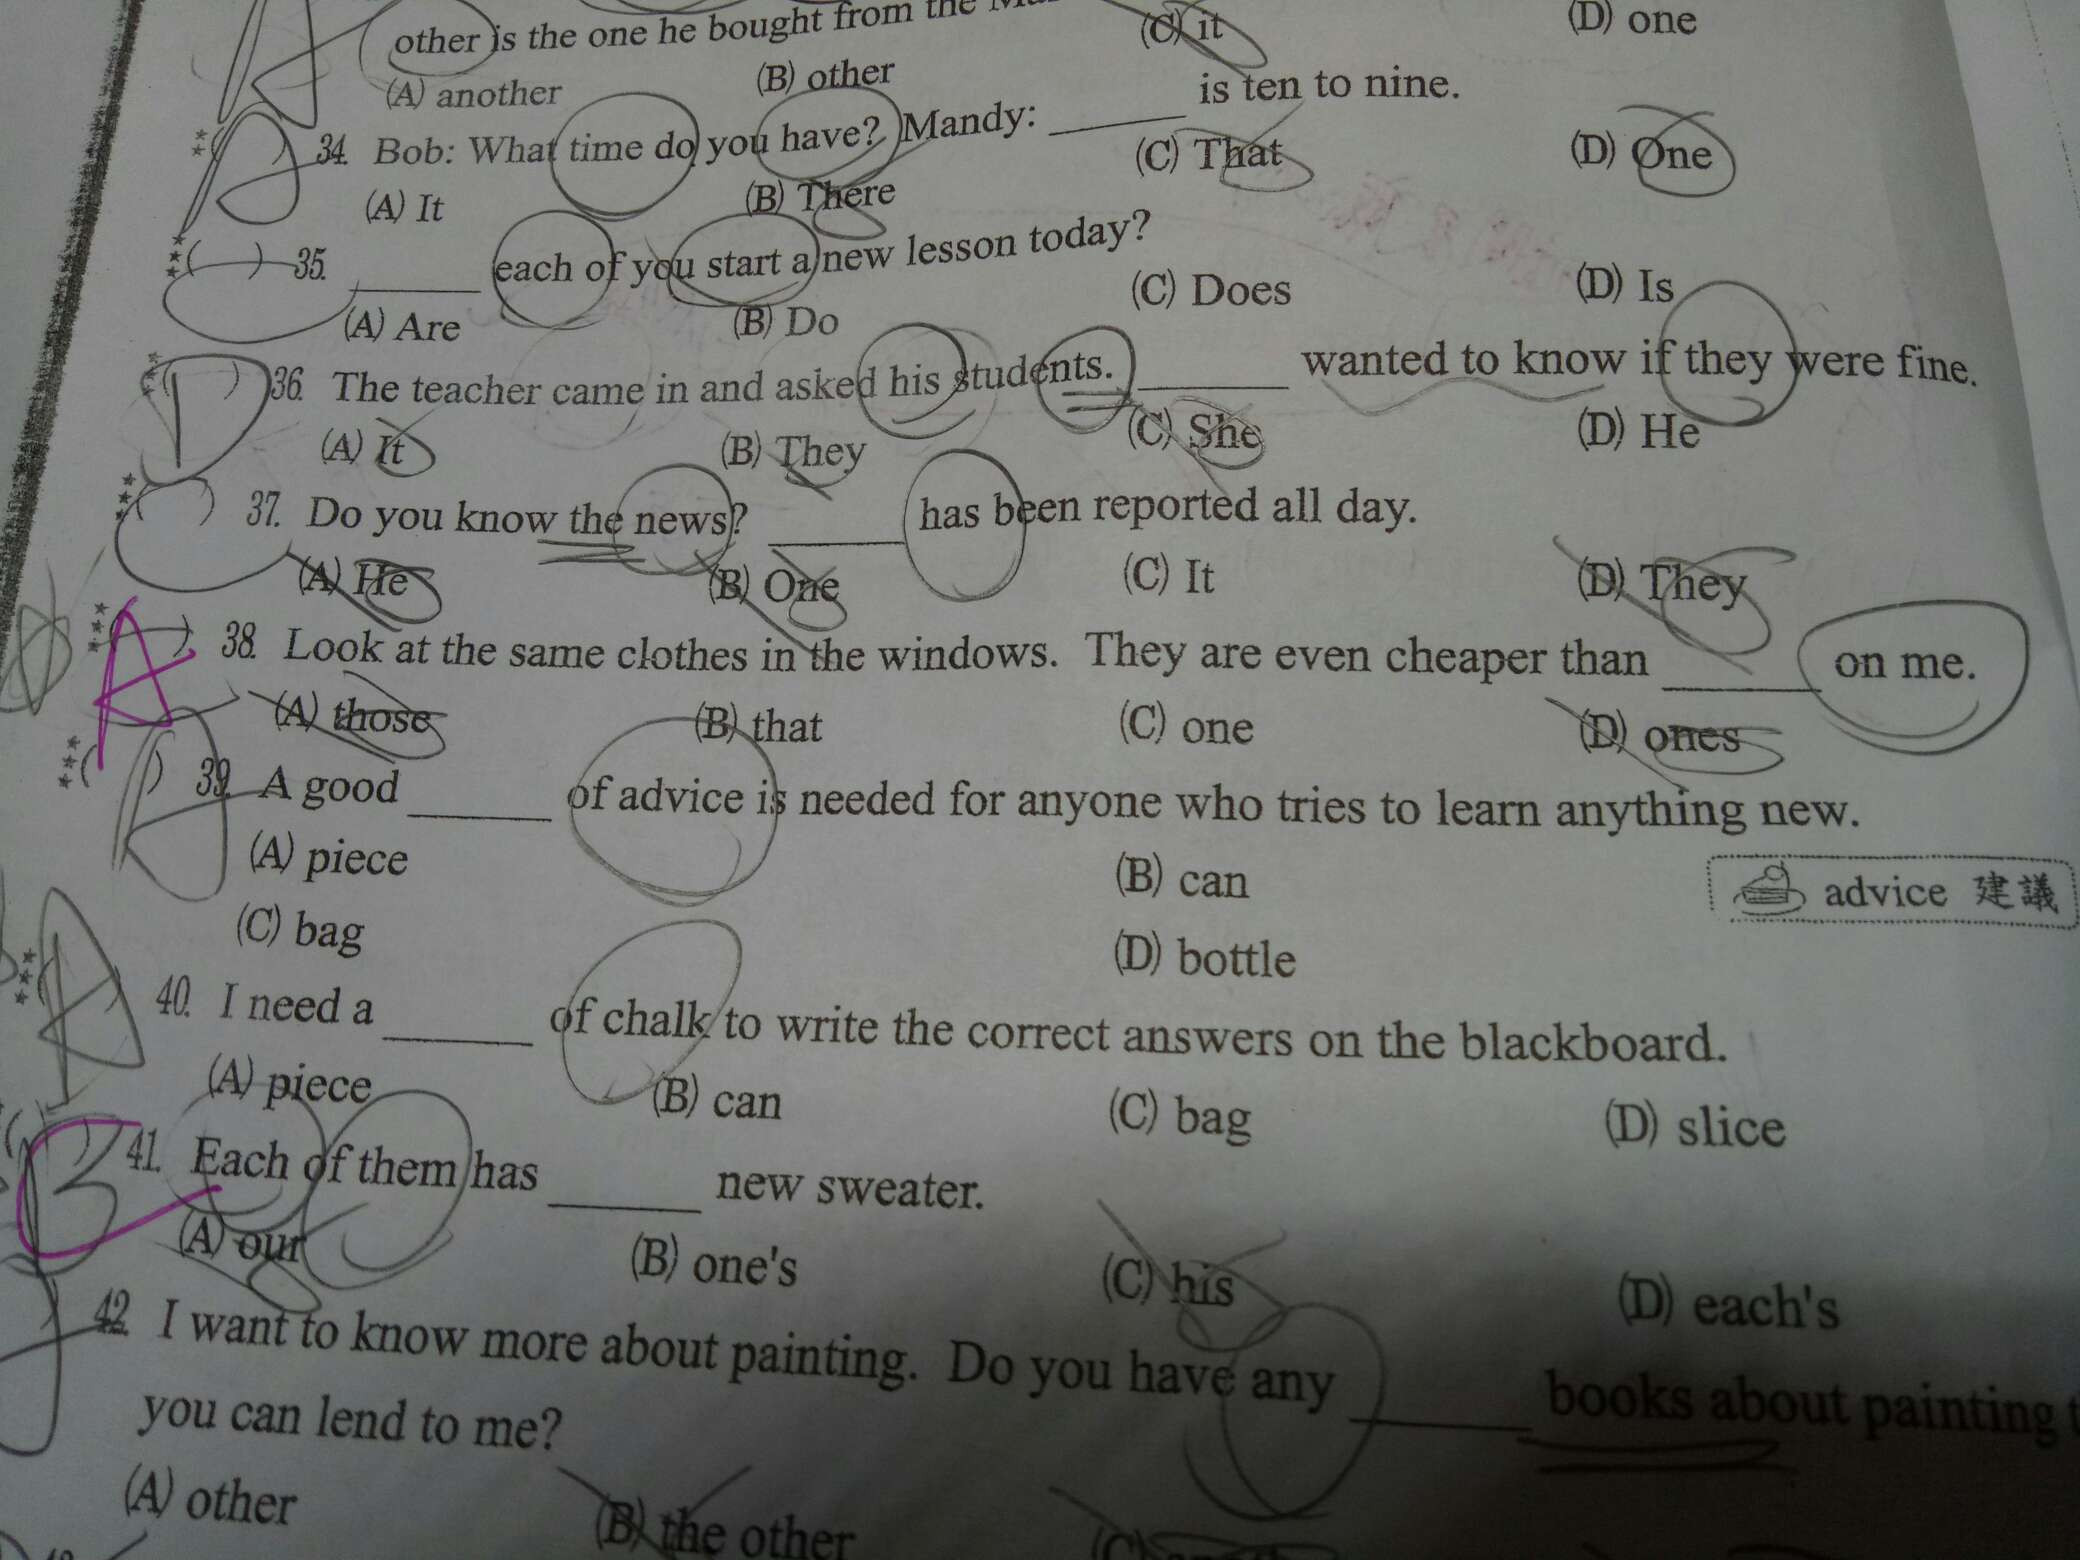 other is the one he bought from the
(A) another (B) other (C) it (D) one
34. Bob: What time do you have? Mandy: ______ is ten to nine.
(A) It (B) There (C) That (D) One
35. ______ each of you start a new lesson today?
(A) Are (B) Do (C) Does (D) Is
36. The teacher came in and asked his students. ______ wanted to know if they were fine.
(A) It (B) They (C) She (D) He
37. Do you know the news? ______ has been reported all day.
(A) He (B) One (C) It (D) They
38. Look at the same clothes in the windows. They are even cheaper than ______ on me.
(A) those (B) that (C) one (D) ones
39. A good ______ of advice is needed for anyone who tries to learn anything new.
(A) piece (B) can
advice 建議
(C) bag (D) bottle
40. I need a ______ of chalk to write the correct answers on the blackboard.
(A) piece (B) can (C) bag (D) slice
41. Each of them has ______ new sweater.
(A) our (B) one's (C) his (D) each's
42. I want to know more about painting. Do you have any ______ books about painting
you can lend to me?
(A) other (B) the other (C)